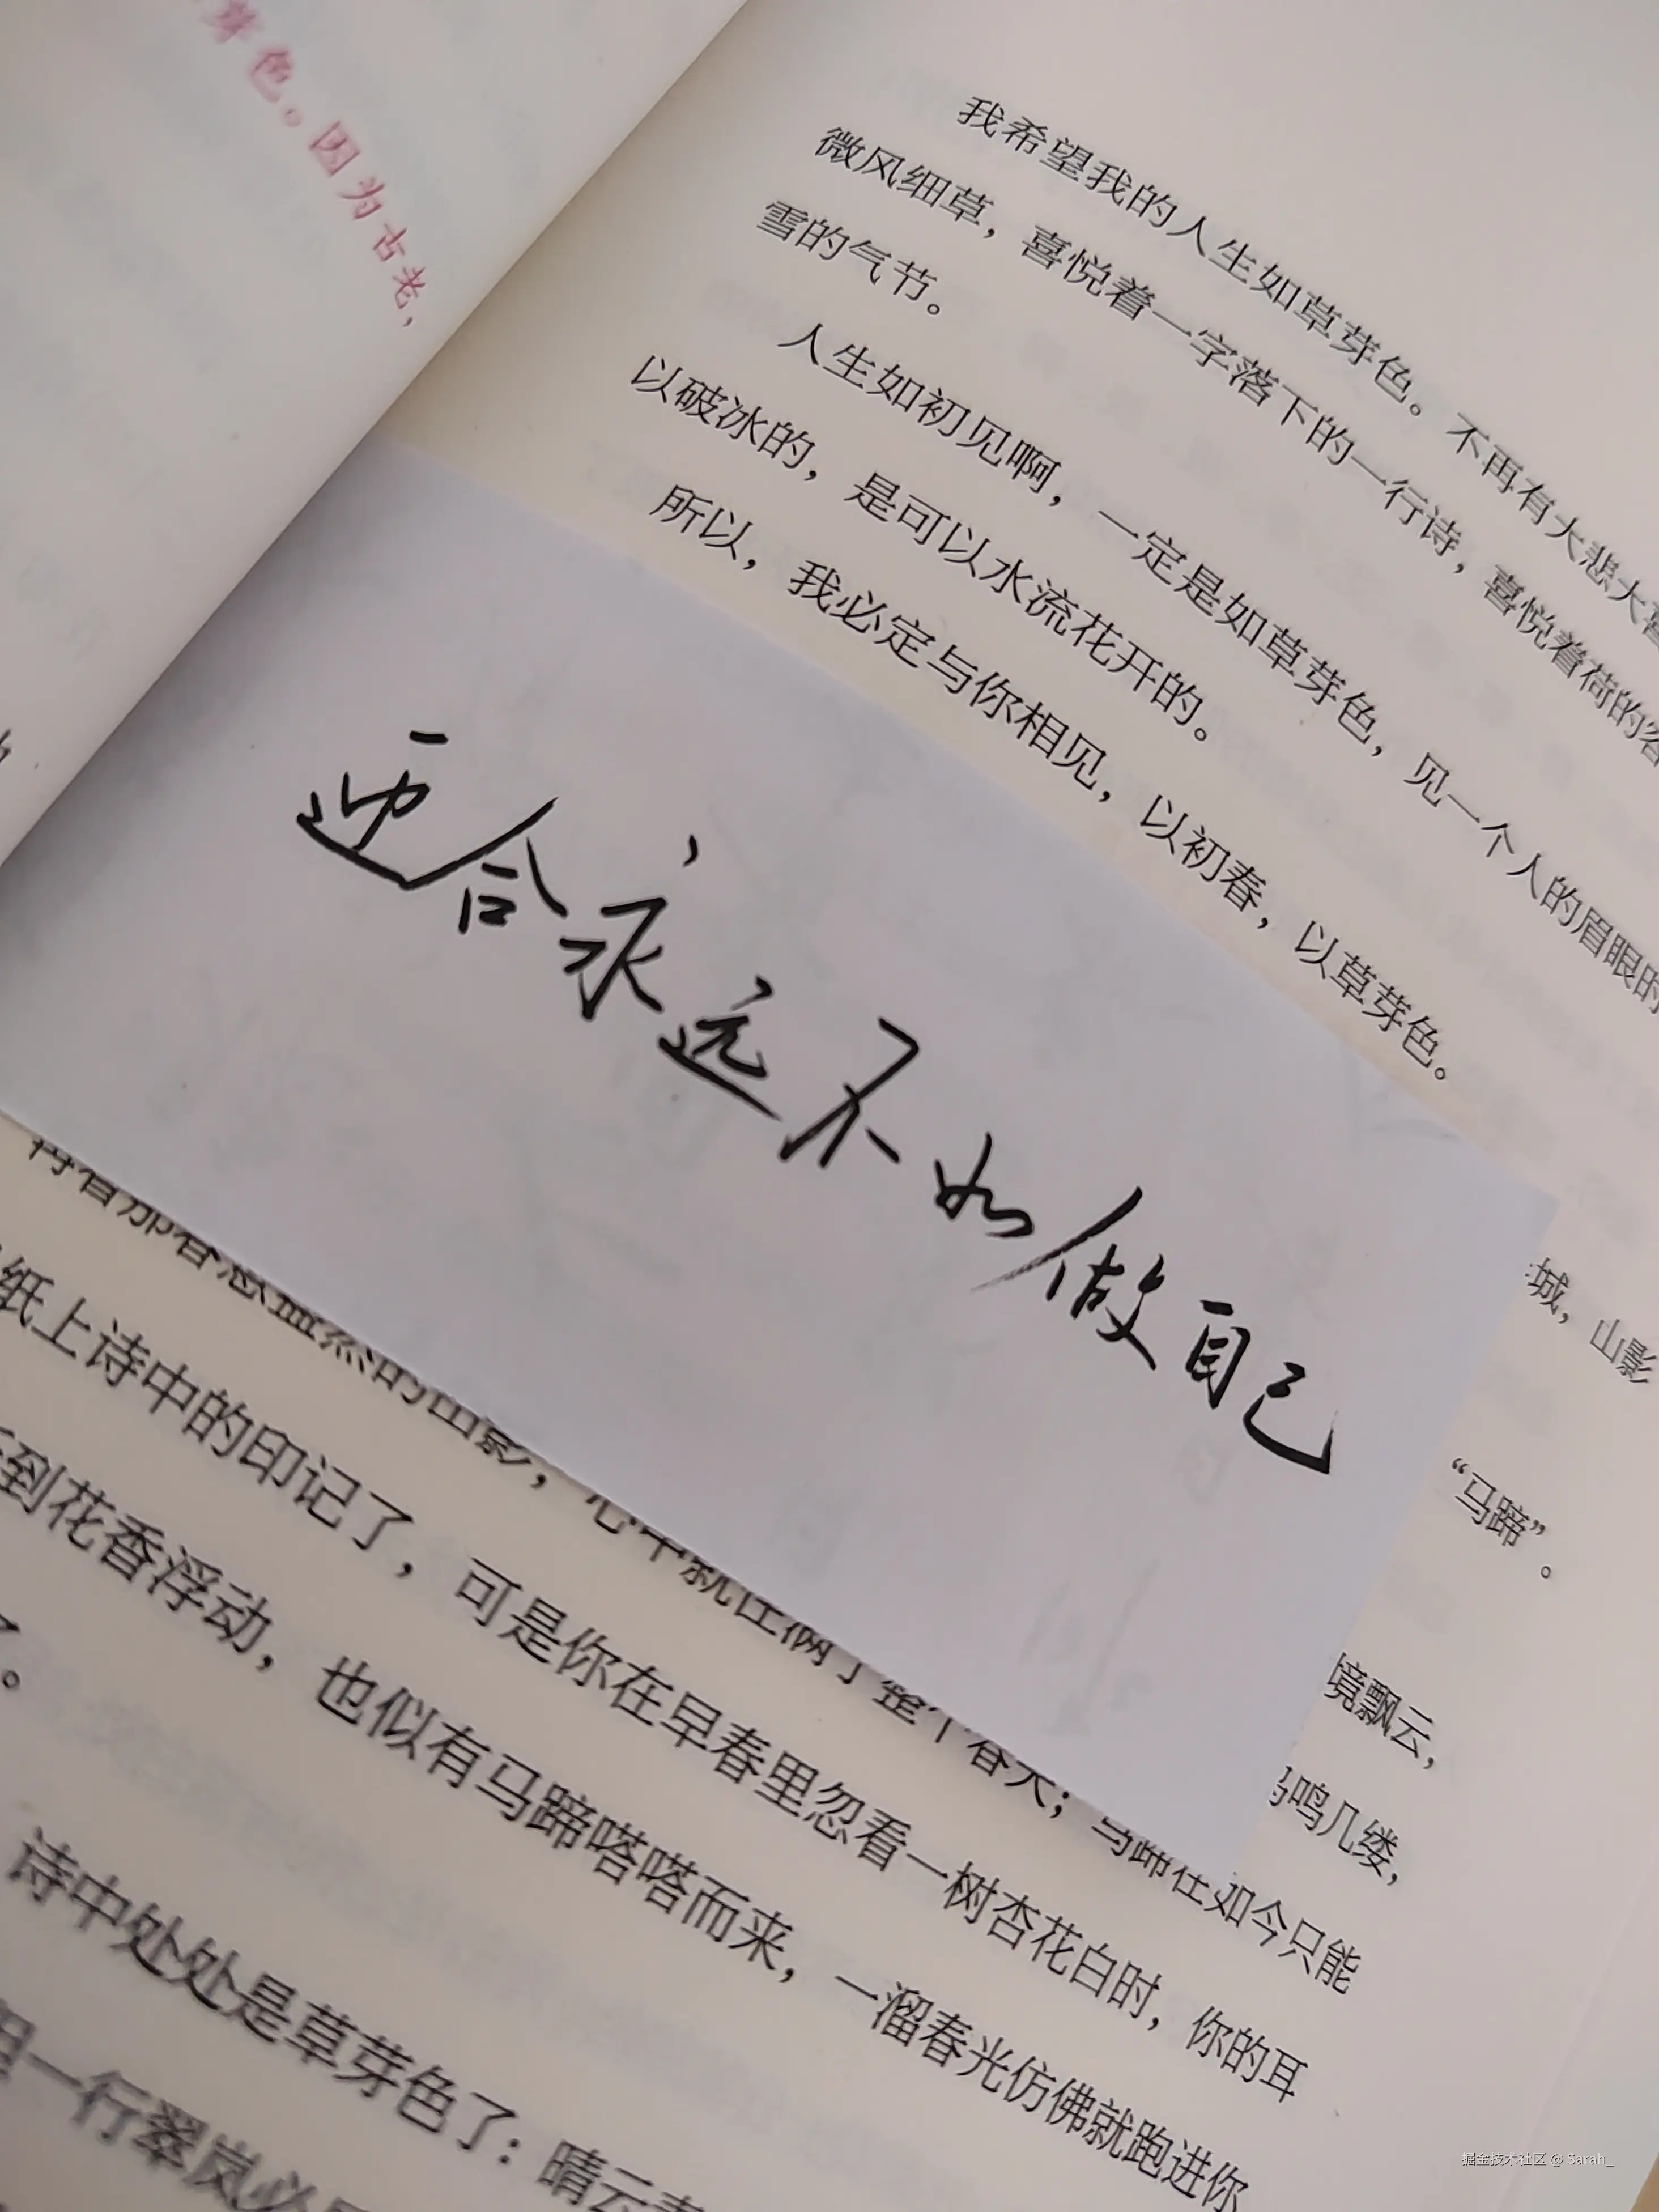 芽色。因为古老，
我希望我的人生如草芽色。不再有大悲大喜
微风细草，喜悦着一字落下的一行诗，喜悦着荷的容
雪的气节。
人生如初见啊，一定是如草芽色，见一个人的眉眼时
以破冰的，是可以水流花开的。
所以，我必定与你相见，以初春，以草芽色。
迎合永远不如做自己
城，山影
“马蹄”。
境飘云，
马鸣几缕，
再看那春意盎然的山影，心中就住满了整个春天；马蹄在如今只能
纸上诗中的印记了，可是你在早春里忽看一树杏花白时，你的耳
到花香浮动，也似有马蹄嗒嗒而来，一溜春光仿佛就跑进你
了。
诗中处处是草芽色了：晴云
一行翠岚必
掘金技术社区 @ Sarah_